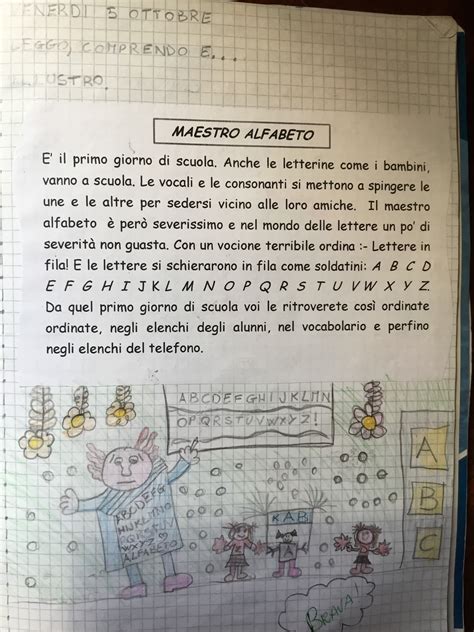 VENERDI 5 OTTOBRE
LEGGO, COMPRENDO E....
ILLUSTRO.
MAESTRO ALFABETO
E' il primo giorno di scuola. Anche le letterine come i bambini,
vanno a scuola. Le vocali e le consonanti si mettono a spingere le
une e le altre per sedersi vicino alle loro amiche. Il maestro
alfabeto è però severissimo e nel mondo delle lettere un po' di
severità non guasta. Con un vocione terribile ordina :- Lettere in
fila! E le lettere si schierarono in fila come soldatini: A B C D
E F G H I J K L M N O P Q R S T U V W X Y Z.
Da quel primo giorno di scuola voi le ritroverete così ordinate
ordinate, negli elenchi degli alunni, nel vocabolario e perfino
negli elenchi del telefono.
ABCDEFGHIJKLMN
OPQRSTUVWXYZ!
A
B
C
ABCDEFG
HQRSTUV
WXYZ
ALFABETO
KAB
A
BRAVA!